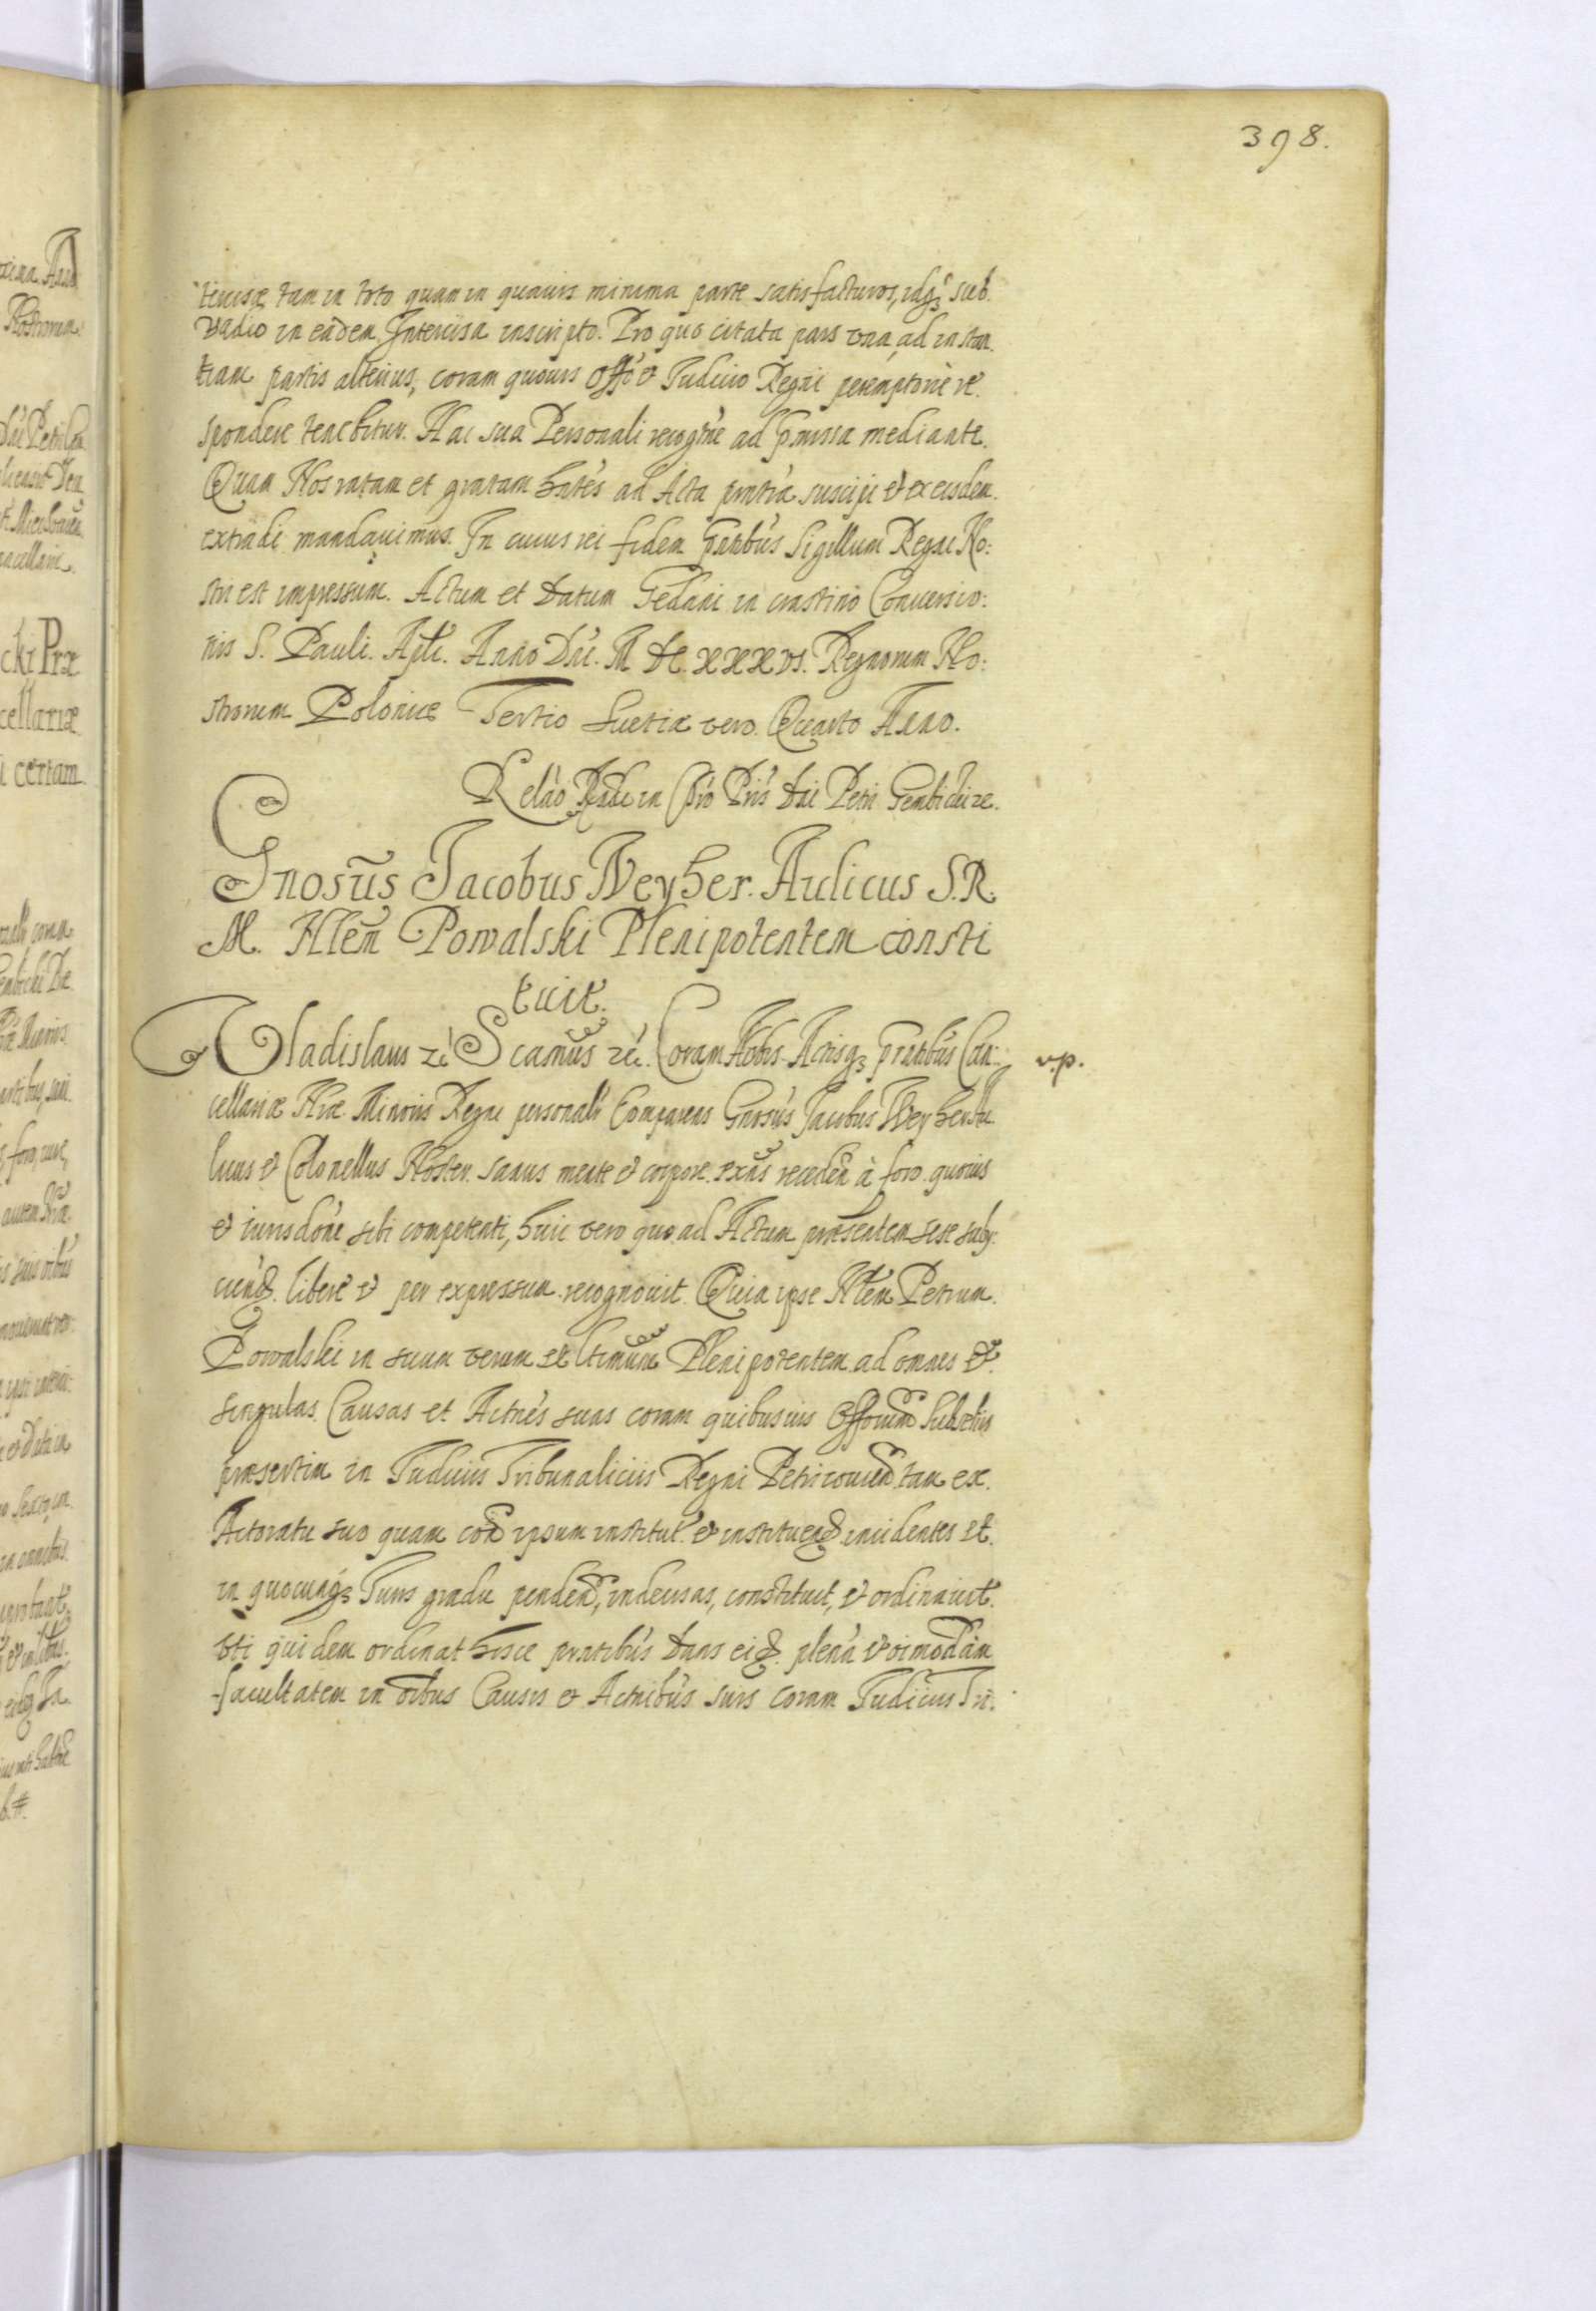 398.
tercisæ tam in toto quam in quavis minima parte satisfacturos, idq3 sub
vadio in eadem Intercisa inscripto. Pro quo citata pars una, ad instan
tiam partis alterius, coram quovis Offō et Judicio Regni peremptorie re
spondere tenebitur. Hac sua Personali recogne ad pmissa mediante.
Quam Nos ratam et gratam hntes ad Acta pntia suscipi et ex eisdem
extradi mandavimus. In cuius rei fidem pntibus Sigillum Regni No:
stri est impressum. Actum et Datum Gedani in crastino Conversio:
nis S. Pauli. Apli. Anno Dni. M DC. XXXVI. Regnorum No:
strorum Poloniæ Tertio Suetiæ vero Quarto Anno.
Relāo Rndi in Chro Pris Dni Petri Gembicki ze.
Gnosus Jacobus Weyher Aulicus S. R.
M. Nlem Powalski Plenipotentem consti
tuit.
Vladislaus zc Scamus zc. Coram Nobis Actisq3 pntibus Can:
v.p.
cellariæ Nræ Minoris Regni personalr Comparens Gnosus Jacobus Weyher Au
licus et Colonellus Noster sanus mente et corpore exns recedēn à foro quovis
et iurisdone sibi competenti, huic vero quo ad Actum præsentem sese subij
ciend. libere et per expressum recognovit. Quia ipse Nlem Petrum
Powalski in suum verum et ltimum Plenipotentem ad omnes et
singulas Causas et Actnes suas coram quibusvis Offorum Subselijs
præsertim in Judicijs Tribunalicijs Regni Petricovien tam ex
Actoratu suo quam con ipsum institut. et instituend. incidentes et
in quocunq3 Juris gradu penden, indecisas, constituit, et ordinavit
Uti quidem ordinat hisce pntibus Dans eid. plenā et oimodam
facultatem in oibus Causis et Actnibus suis coram Judicijs Tri.